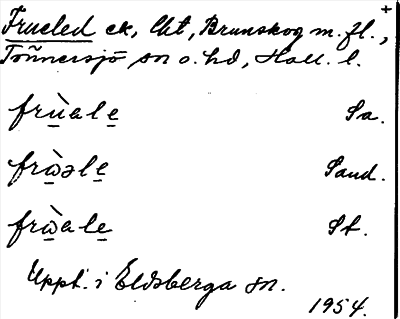 +
Frueled ek, lht, Brunskog m. fl.,
Tönnersjö sn o. hd, Hall. l.
frùale Sa.
fròəle Sand.
fròale St.
Uppt. i Eldsberga sn.
1954.